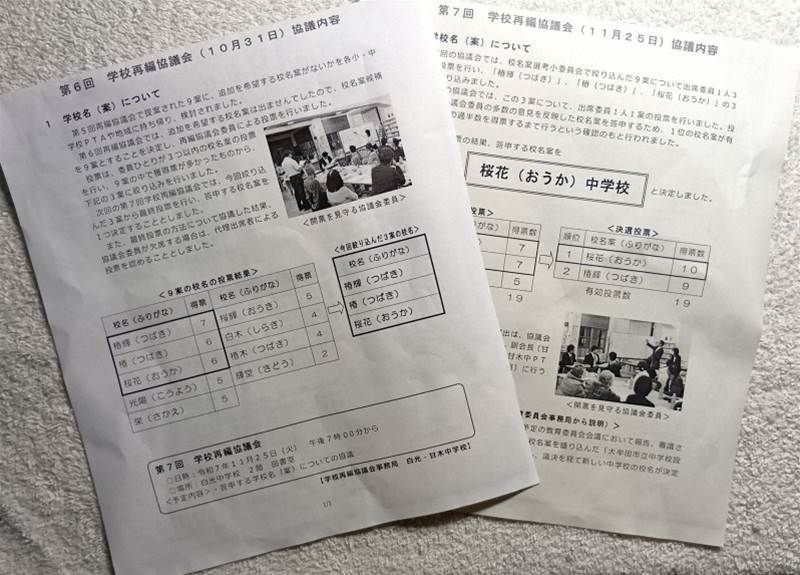 第6回 学校再編協議会(10月31日)協議内容
1 学校名(案)について
第5回再編協議会で提案された9案に、追加を希望する校名案がないかを各小・中
学校PTAや地域に持ち帰り、検討されました。
第6回再編協議会では、追加を希望する校名案は出ませんでしたので、校名案候補
を9案とすることを決定し、再編協議会委員による投票を行いました。
投票は、委員ひとりが3つ以内の校名案の投票
を行い、9案の中で獲得票が多かったものから、
下記の3案に絞り込みを行いました。
次回の第7回学校再編協議会では、今回絞り込
んだ3案から最終投票を行い、答申する校名案を
1つ決定することとしました。
また、最終投票の方法について協議した結果、
協議会委員が欠席する場合は、代理出席者による
投票を認めることとしました。
<開票を見守る協議会委員>
<9案の校名の投票結果>
校名(ふりがな) 得票 校名(ふりがな) 得票
椿輝(つばき) 7 桜輝(おうき) 5
椿(つばき) 6 白木(しらき) 4
桜花(おうか) 6 椿木(つばき) 4
光陽(こうよう) 5 輝堂(きどう) 2
栄(さかえ) 5
<今回絞り込んだ3案の校名>
校名(ふりがな)
椿輝(つばき)
椿(つばき)
桜花(おうか)
第7回 学校再編協議会
○日時:令和7年11月25日(火) 午後7時00分から
○場所:白光中学校 2階 図書室
<予定内容>・答申する学校名(案)についての協議
【学校再編協議会事務局 白光・甘木中学校】
1/1
第7回 学校再編協議会(11月25日)協議内容
学校名(案)について
回の協議会では、校名案選考小委員会で絞り込んだ9案について出席委員1人3
投票を行い、「椿輝(つばき)」、「椿(つばき)」、「桜花(おうか)」の3
り込みました。
の協議会では、この3案について、出席委員1人1案の投票を行いました。投
議会委員の多数の意見を反映した校名案を答申するため、1位の校名案が有
の過半数を得票するまで行うという確認のもと行われました。
票の結果、答申する校名案を
桜花(おうか)中学校
と決定しました。
投票>
得票数
7
7
5
19
<決選投票>
順位 校名案(ふりがな) 得票数
1 桜花(おうか) 10
2 椿輝(つばき) 9
有効投票数 19
出は、協議会
、副会長(甘
甘木中PT
)に行う
<開票を見守る協議会委員>
委員会事務局から説明)>
予定の教育委員会会議において報告、審議さ
校名案を盛り込んだ「大牟田市立中学校設
、議決を経て新しい中学校の校名が決定